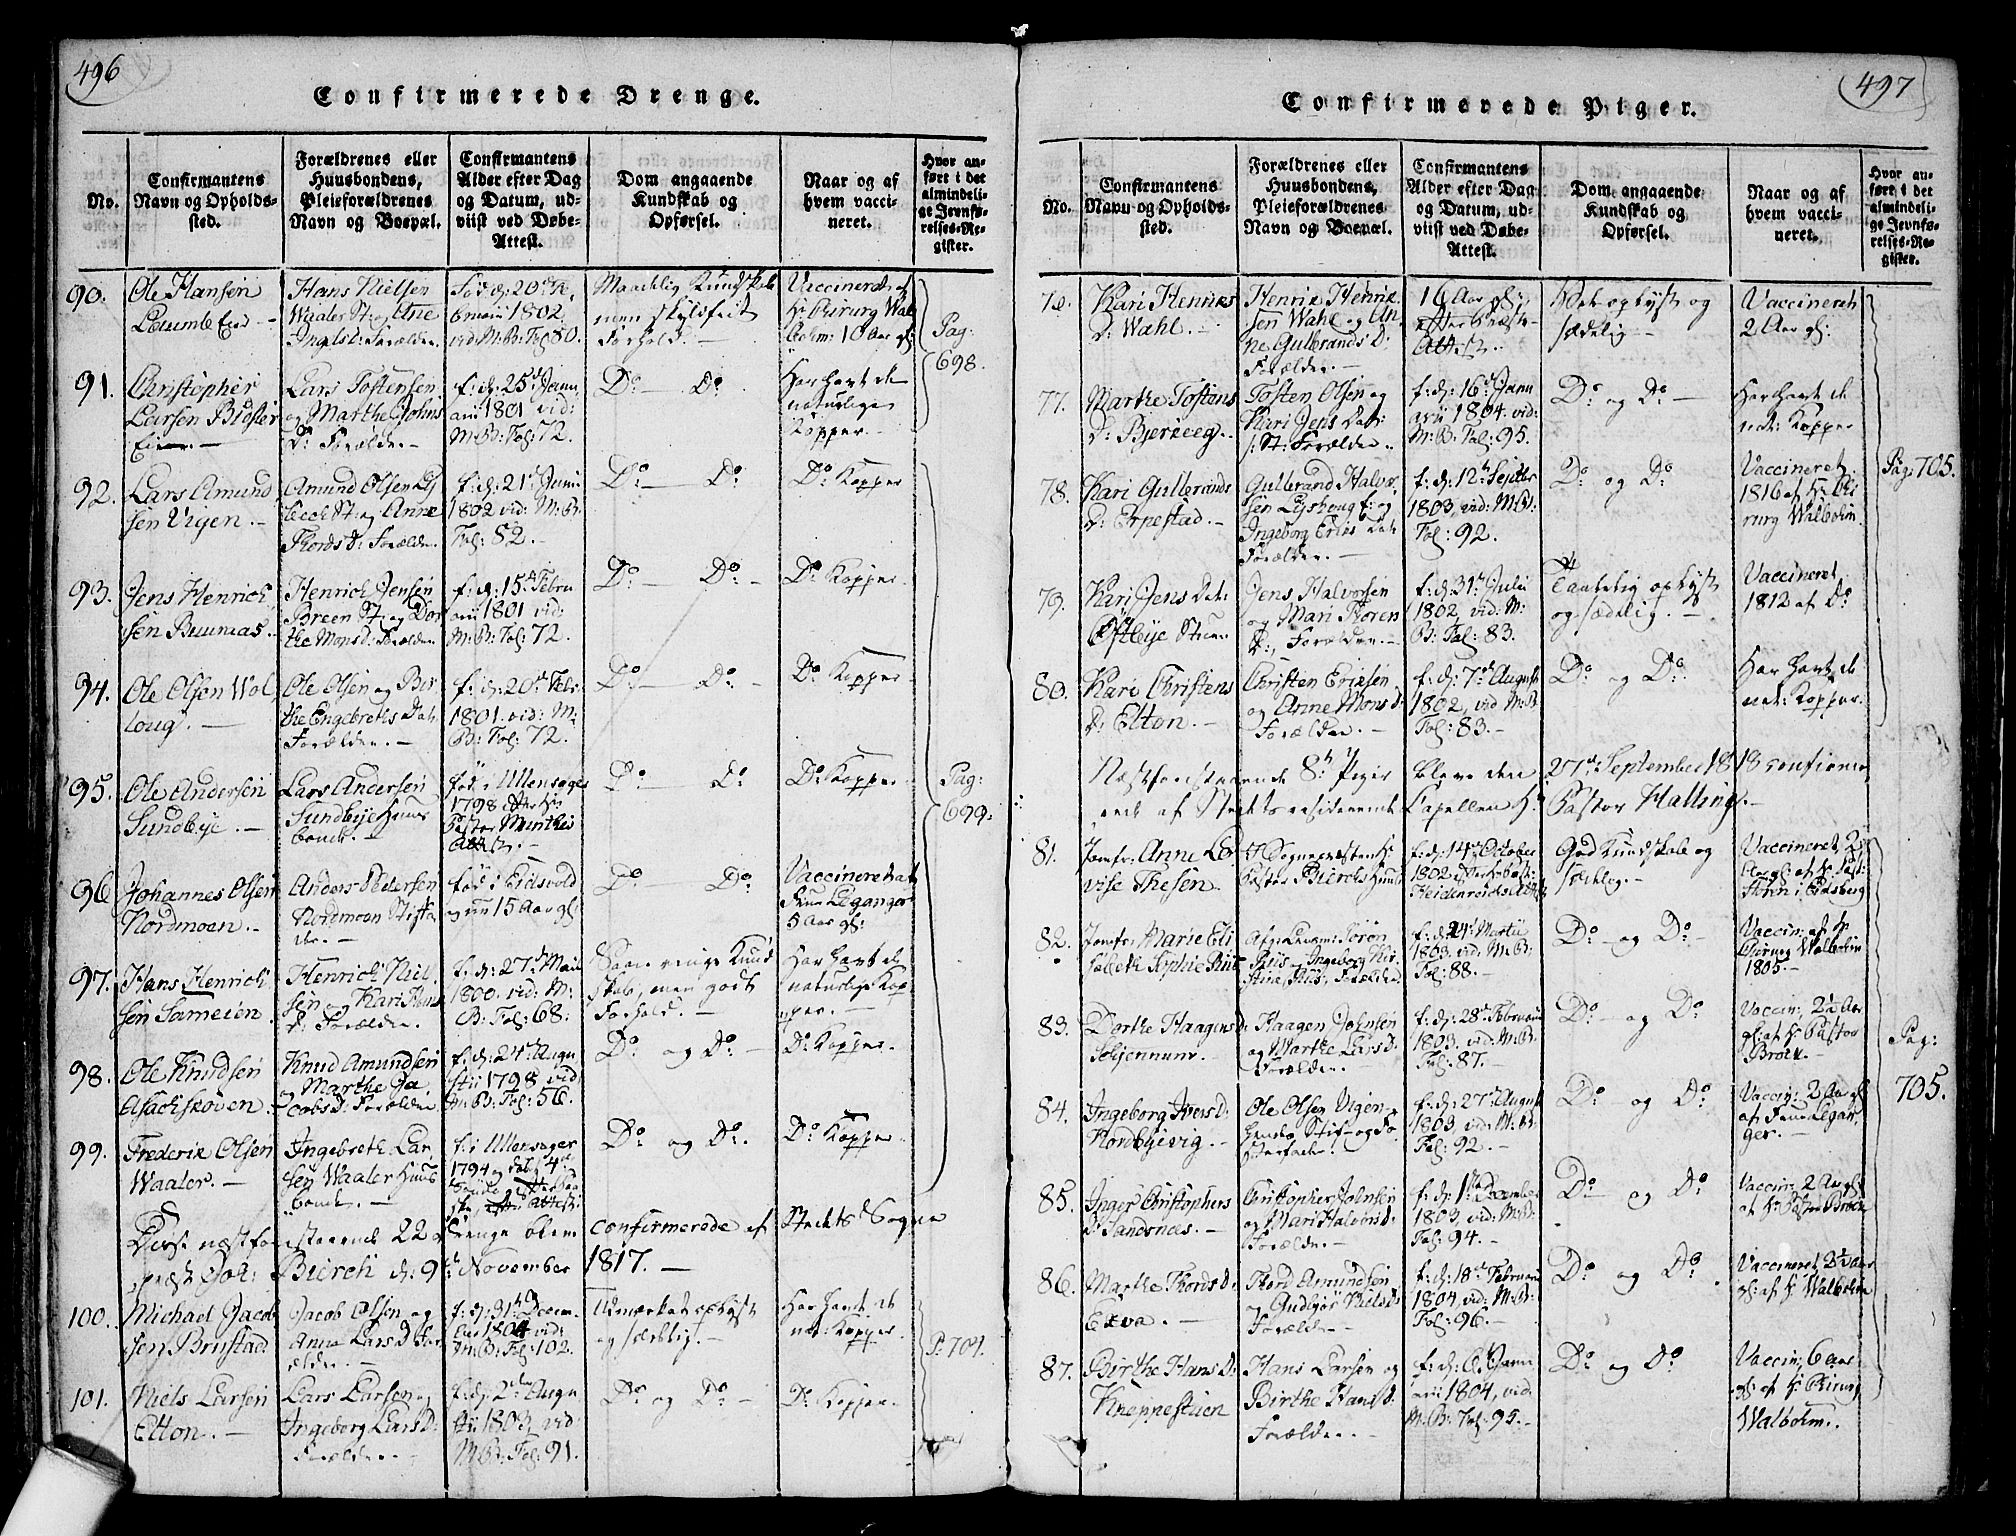 496
Confirmerede Drenge.
No.
Confirmantens
Navn og Opholds-
sted.
Forældrenes eller
Huusbondens,
Pleieforældrenes
Navn og Boepæl.
Confirmantens
Alder efter Dag
og Datum, ud-
viist ved Døbe-
Attest.
Dom angaaende
Kundskab og
Opførsel.
Naar og af
hvem vacci-
neret.
Hvor an-
ført i det
almindeli-
ge Jevnfø-
relses-Re-
gister.
90.
Ole Hansen
Hans Nielsen
Waaler St: og Ane
Ingels d: Forældre
Fød d: 20de
1802
vid: M: B: Fol: 80.
Maadelig Kundskab
men skyldfrit
Forhold. –
Vaccineret af
Hr Chirurg Wal
bohm: 10 Aar gl:
Pag:
698.
91.
Christopher
Larsen
Eier. –
Lars Tostensen
og Marthe Johns
D: Forældre –
f: d: 25de Janu
arii 1801 vid:
M: B: Fol: 72.
Do – Do
Har havt de
naturlige
Kopper. –
92.
Lars Amund
sen Vigen. –
Amund Olsen
St: og Anne
Thords d: Forældre
f: d: 21de Junii
1802 vid: M: B:
Fol: 82. –
Do – Do
Do Kopper
93.
Jens Henrich
sen
Henrich Jensen
Breen St: og Dor
the Mons d: Forældre
f: d: 15de Febru
arii 1801 vid:
M: B: Fol: 72.
Do – Do –
Do Kopper.
94.
Ole Olsen Wol
loug. –
Ole Olsen og Ber
the Engebreths Dat
Forældre. –
f: d: 20de Febr
1801. vid: M:
B: Fol: 72.
Do – Do –
Do Kopper –
95.
Ole Andersen
Sundbye. –
Lars Andersen
Sundbye Huus
bonde. –
fød i Ullensager
1798 efter Hr
Pastor
Attest. –
Do – Do
Do Kopper –
Pag:
699.
96
Johannes Olsen
Nordmoen. –
Anders Pedersen
Nordmoen Stiffa
der. –
fød i Eidsvold
og nu 15 Aar gl:
Do – Do
Vaccineret af
Frue Leganger
5 Aar gl:
97.
Hans Henrich
sen Sameien.
Henrich Niel
sen og Kari Hans
D: Forældre.
f: d: 27de Maii
1800. vid: M:
B: Fol: 68. –
Saare ringe Kund
skab, men godt
Forhold. –
Har havt de
naturlige Kop
per. –
98.
Ole Knudsen
Asachskoven. –
Knud Amundsen
og Marthe Ja
cobs d: Forældre
f: d: 24de Augu
stii 1798 vid
M: B: Fol: 56.
Do og Do –
Do Kopper –
99.
Frederik Olsen
Waaler. –
Ingebreth Lar
sen Waaler Huus
bonde. –
f: i Ullensager
1794
Do og Do.
Do Kopper
Disse næstforestaaende 22 Drenge bleve confirmerede af Stedets Sogne
præst Joh: Bierch d: 9de November 1817. –
100.
Michael Jacob
sen Brustad
Jacob Olsen og
Anne Lars D For
ældre. –
f: d: 31te Decem
ber 1804 vid:
M: B: Fol: 102.
Udmærket oplyst
og sædelig. –
Har havt de
nat: Kopper
P: 704.
101.
Niels Larsen
Elton. –
Lars Larsen og
Ingeborg Lars D:
Forældre. –
f: d: 2den Augu
stii 1803, vid:
M: B: Fol: 91.
Do og Do –
Do Kopper. –
497
Confirmerede Piger.
No.
Confirmantens
Navn og Opholds-
sted.
Forældrenes eller
Huusbondens,
Pleieforældrenes
Navn og Boepæl.
Confirmantens
Alder efter Dag
og Datum, ud-
viist ved Døbe-
Attest.
Dom angaaende
Kundskab og
Opførsel.
Naar og af
hvem vacci-
neret.
Hvor an-
ført i det
almindeli-
ge Jevnfø-
relses-Re-
gister.
76.
Kari Henriks
D: Wahl. –
Henrik Henrik
sen Wahl og An
ne Gulbrands D:
Forældre. –
16 Aar gl:
efter Præste
Attest. –
Ret oplyst og
sædelig –
Vaccineret
2 Aar gl:
77.
Marthe Tostens
D: Bjerkeeg. –
Tosten Olsen og
Kari Jens Datr
St: Forældre. –
f: d: 16de Janu
arii 1804. vid:
M: B: Fol: 95. –
Do og Do –
Har havt de
nat: Kopper
78.
Kari Gulbrands
D: Erpestad. –
Gulbrand Halvor
sen Lyshoug f: og
Ingeborg Eriks Dat
Forældre. –
f: d: 12te Septbr
1803, vid: M: B:
Fol: 92.
Do og Do
Vaccineret
1816 af Hr Chi
rurg Walbohm.
Pag: 705.
79.
Kari Jens Dat:
Østbye
Jens Halvorsen
og Mari Thoren
D:, Forældre. –
f: d: 31te Julii
1802, vid: M:
B: Fol: 83.
Taalelig oplyst
og sædelig. –
Vaccineret
1812 af Do
80.
Kari Christens
D: Elton. –
Christen Eriksen
og Anne Mons d:
Forældre. –
f: d: 7de August
1802, vid M: B:
Fol: 83. –
Do og Do.
Har havt de
nat: Kopper.
Næstforestaaende 8te Piger bleve den 27de September 1818 confirme
rede af Stedets residerende Capellan Hr Pastor Halling. –
81.
Jomfr: Anne Lo
vise Thesen.
Sognepræsten Hr
Pastor Bierchs Huus
f: d: 14de October
1802 efter Hr Past:
Heidenreichs Attest
God Kundskab og
sædelig. –
Vaccineret, 2
Aar gl: af Hr Past:
Storm i Eidsberg
82.
Jomfr: Marie Eli
sabeth Sophie Riis
Afg: Lensm: Søren
Riis og Ingeborg Kir
stine Riis, Forældre
f: d: 24de Martii
1803. vid: M: B:
Fol: 88. –
Do – og Do –
Vaccin: af Hr
Chirurg Walbohm
1805. –
83.
Dorthe Haagens D:
Schjennum.
Haagen Johnsen
og Marthe Lars D:
Forældre. –
f: d: 28de Februarii
1803. vid: M: B:
Fol: 87. –
Do – og Do
Vaccin: 2½ Aar
gl: af Hr Pastor
Brock. –
Pag:
705.
84.
Ingeborg Ivers D:
Nordbyevig. –
Ole Olsen Vigen
hendes Stif- og Fo
sterfader. –
f: d: 27de August
1803, vid: M: B:
Fol: 92. –
Do og Do
Vaccin: 2 Aar gl
af Frue Legan
ger. –
85.
Inger Christophers
D: Sandsnæs. –
Christopher Johnsen
og Mari Halvors D:
Forældre. –
f: d: 1te December
1803, vid: M: B:
Fol: 94. –
Do – og Do
Vaccin: 2 Aar gl:
af Hr Pastor Brock
86.
Marthe Thords D:
Exva. –
Thord Amundsen
og Gudigør Niels D:
Forældre –
f: d: 18de Februarii
1804, vid: M: B:
Fol: 96. –
Do og Do
Vaccineret 2½ Aar
gl: af Hr Walbohm
87.
Birthe Hans D:
Kneppestuen
Hans Larsen og
Birthe Hans D:
Forældre. –
f: d: 6te Janu
arii 1804, vid:
M: B: Fol: 95. –
Do og Do
Vaccin: 6 Aar
gl: af Hr Chirurg
Walbohm. –